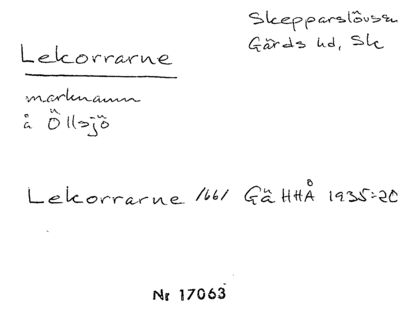 Skepparslövsen
Gärds hd, Sk
Lekorrarne
marknamn
å Öllsjö
Lekorrarne 1661 GäHHÅ 1935:20
Nr 17063